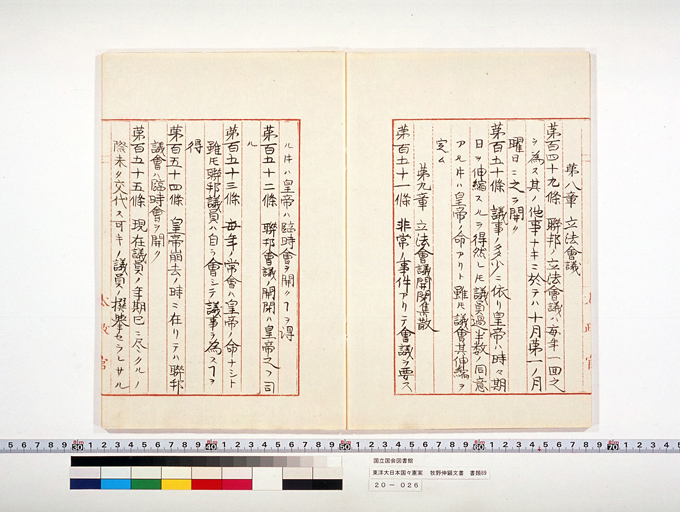 第八章 立法會議
第百四十九條 聯邦ノ立法會議ハ毎年一回之
ヲ為ス其ノ他事ナキニ於テハ十月第一ノ月
曜日ニ之ヲ開ク
第百五十條 議事ノ多少ニ依リ皇帝ハ時々期
日ヲ伸縮スルヲ得然レ𪜈議員過半数ノ同意
アル𪜈ハ皇帝ノ命アリト雖𪜈議會其伸縮ヲ
定ム
第九章 立法會議開閉集散
第百五十一條 非常ノ事件アリテ會議ヲ要ス
ル𪜈ハ皇帝ハ臨時會ヲ開クヿヲ得
第百五十二條 聯邦會議ノ開閉ハ皇帝之ヲ司
ル
第百五十三條 毎年ノ常會ハ皇帝ノ命ナシト
雖𪜈聯邦議員ハ自ラ會シテ議事ヲ為スヿヲ
得
第百五十四條 皇帝崩去ノ時ニ在リテハ聯邦
議會ハ臨時會ヲ開ク
第百五十五條 現在議員ノ年期已ニ尽クルノ
際未タ交代ス可キノ議員ノ撰擧セラレサル
太政官
国立国会図書館
東洋大日本国々憲案 牧野伸顕文書 書類89
20-026